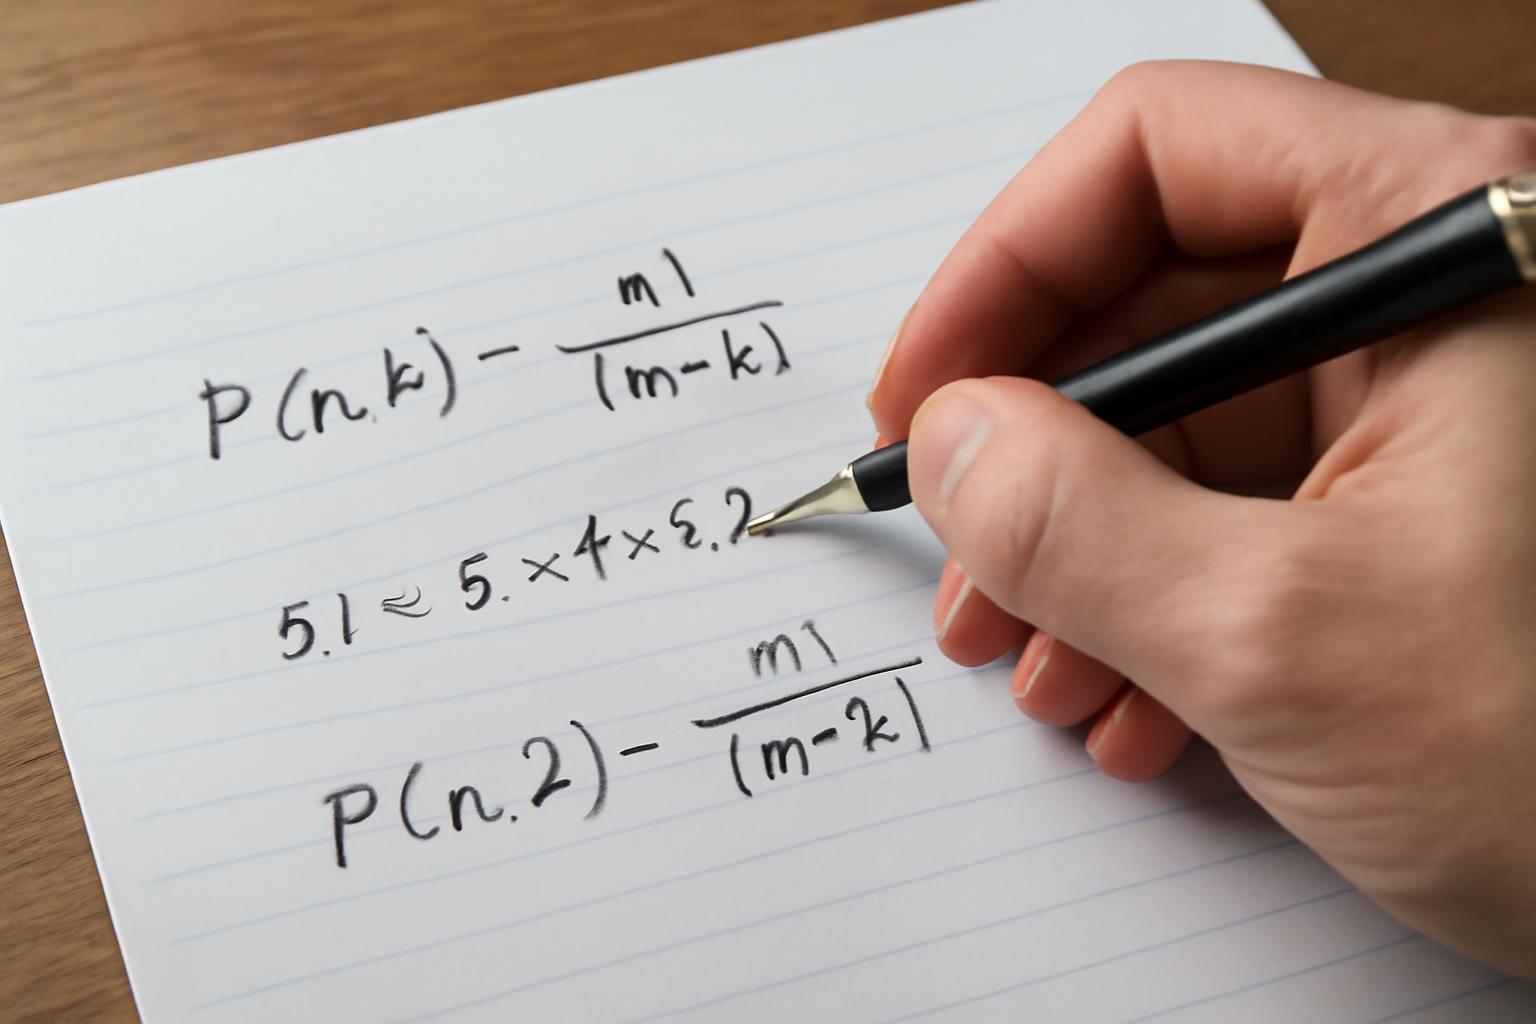 P(n.k) - m1
(m-k)
5.1 ≈ 5. × 4 × 2.
P(n.2) - m1
(m-k|